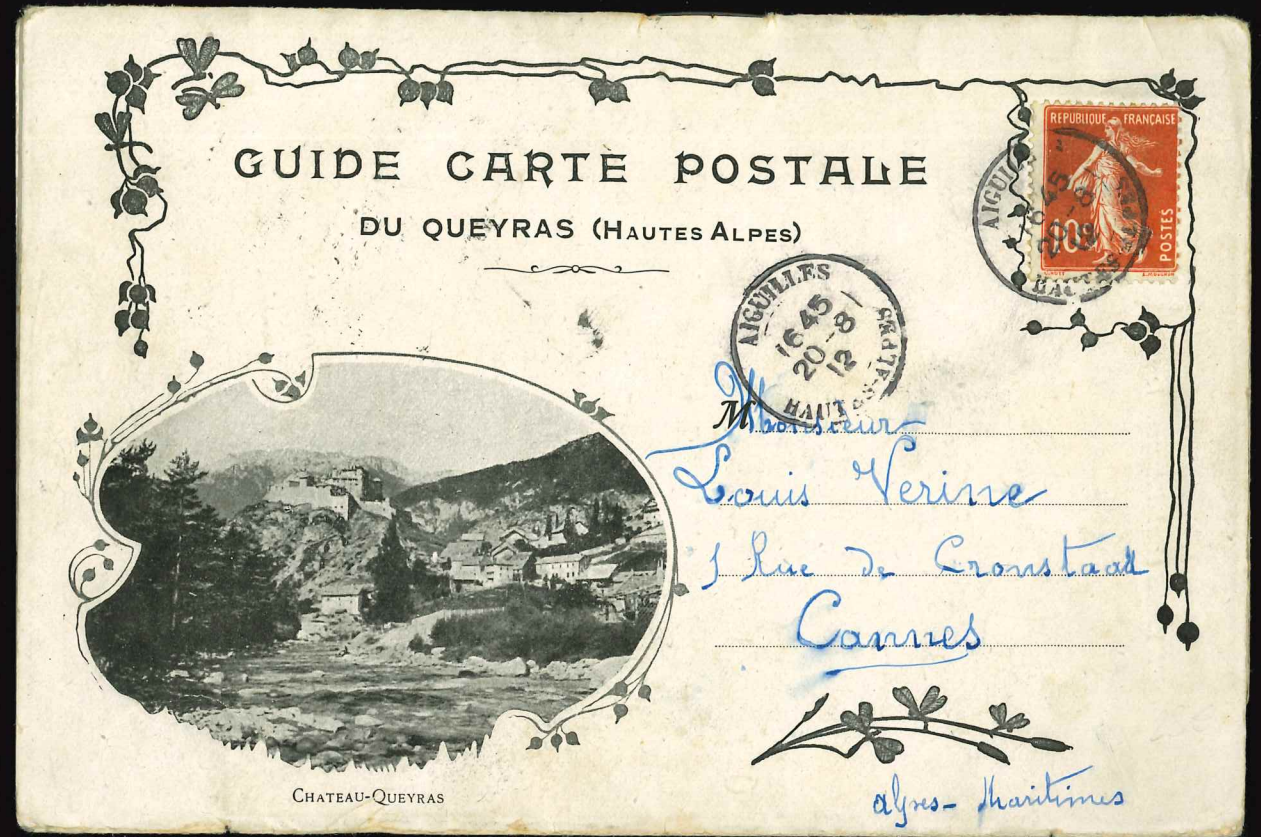 GUIDE CARTE POSTALE
DU QUEYRAS (HAUTES ALPES)
REPUBLIQUE FRANÇAISE
10c
POSTES
AIGUILLES
16 45
20 - 8
12
HAUTES-ALPES
AIGUILLES
16 45
20 - 8
12
HAUTES-ALPES
M Monsieur
Louis Verine
1 Rue de Cronstadt
Cannes
Alpes-Maritimes
CHATEAU-QUEYRAS